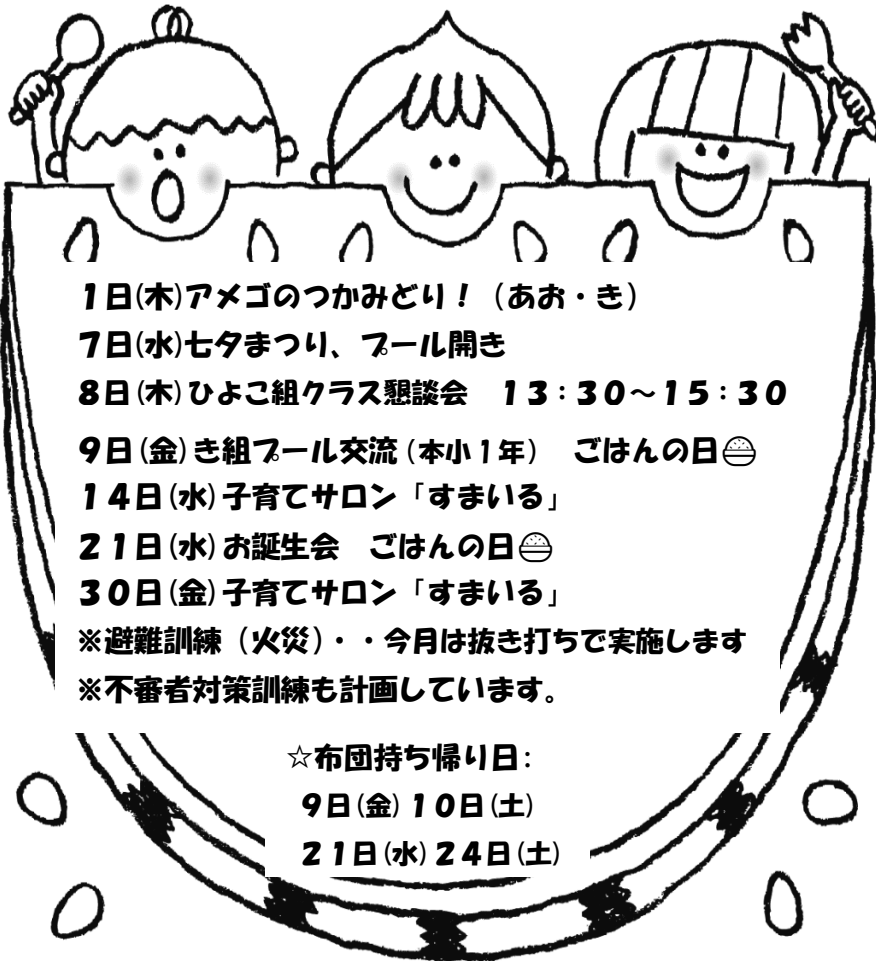 １日(木)アメゴのつかみどり！（あお・き）
７日(水)七夕まつり、プール開き
８日(木)ひよこ組クラス懇談会　１３：３０～１５：３０
９日(金)き組プール交流(本小１年)　ごはんの日🍚
１４日(水)子育てサロン「すまいる」
２１日(水)お誕生会　ごはんの日🍚
３０日(金)子育てサロン「すまいる」
※避難訓練（火災）・・今月は抜き打ちで実施します
※不審者対策訓練も計画しています。
☆布団持ち帰り日：
９日(金)１０日(土)
２１日(水)２４日(土)